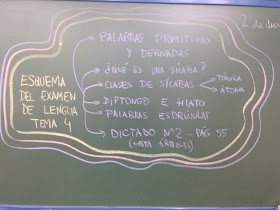 PALABRAS PRIMITIVAS
Y DERIVADAS
¿QUÉ ES UNA SÍLABA?
CLASES DE SÍLABAS
TÓNICA
ÁTONA
DIPTONGO E HIATO
PALABRAS ESDRÚJULAS
DICTADO Nº2 - PÁG 55
ESQUEMA
DEL EXAMEN
DE LENGUA
TEMA 4
2 de